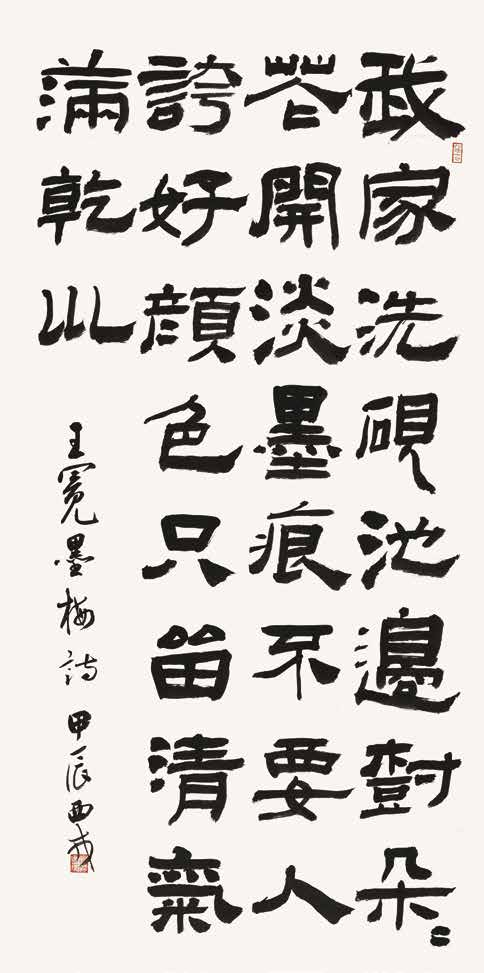 我家洗硯池邊樹朵〻
花開淡墨痕不要人
誇好顏色只留清氣
滿乾坤
王冕墨梅詩 甲辰西